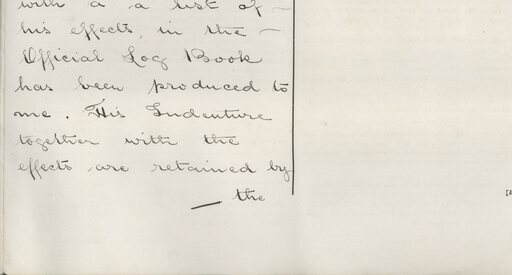 with a a list of —
his effects, in the —
Official Log Book
has been produced to
me. His Indenture
together with the
effects are retained by
— the